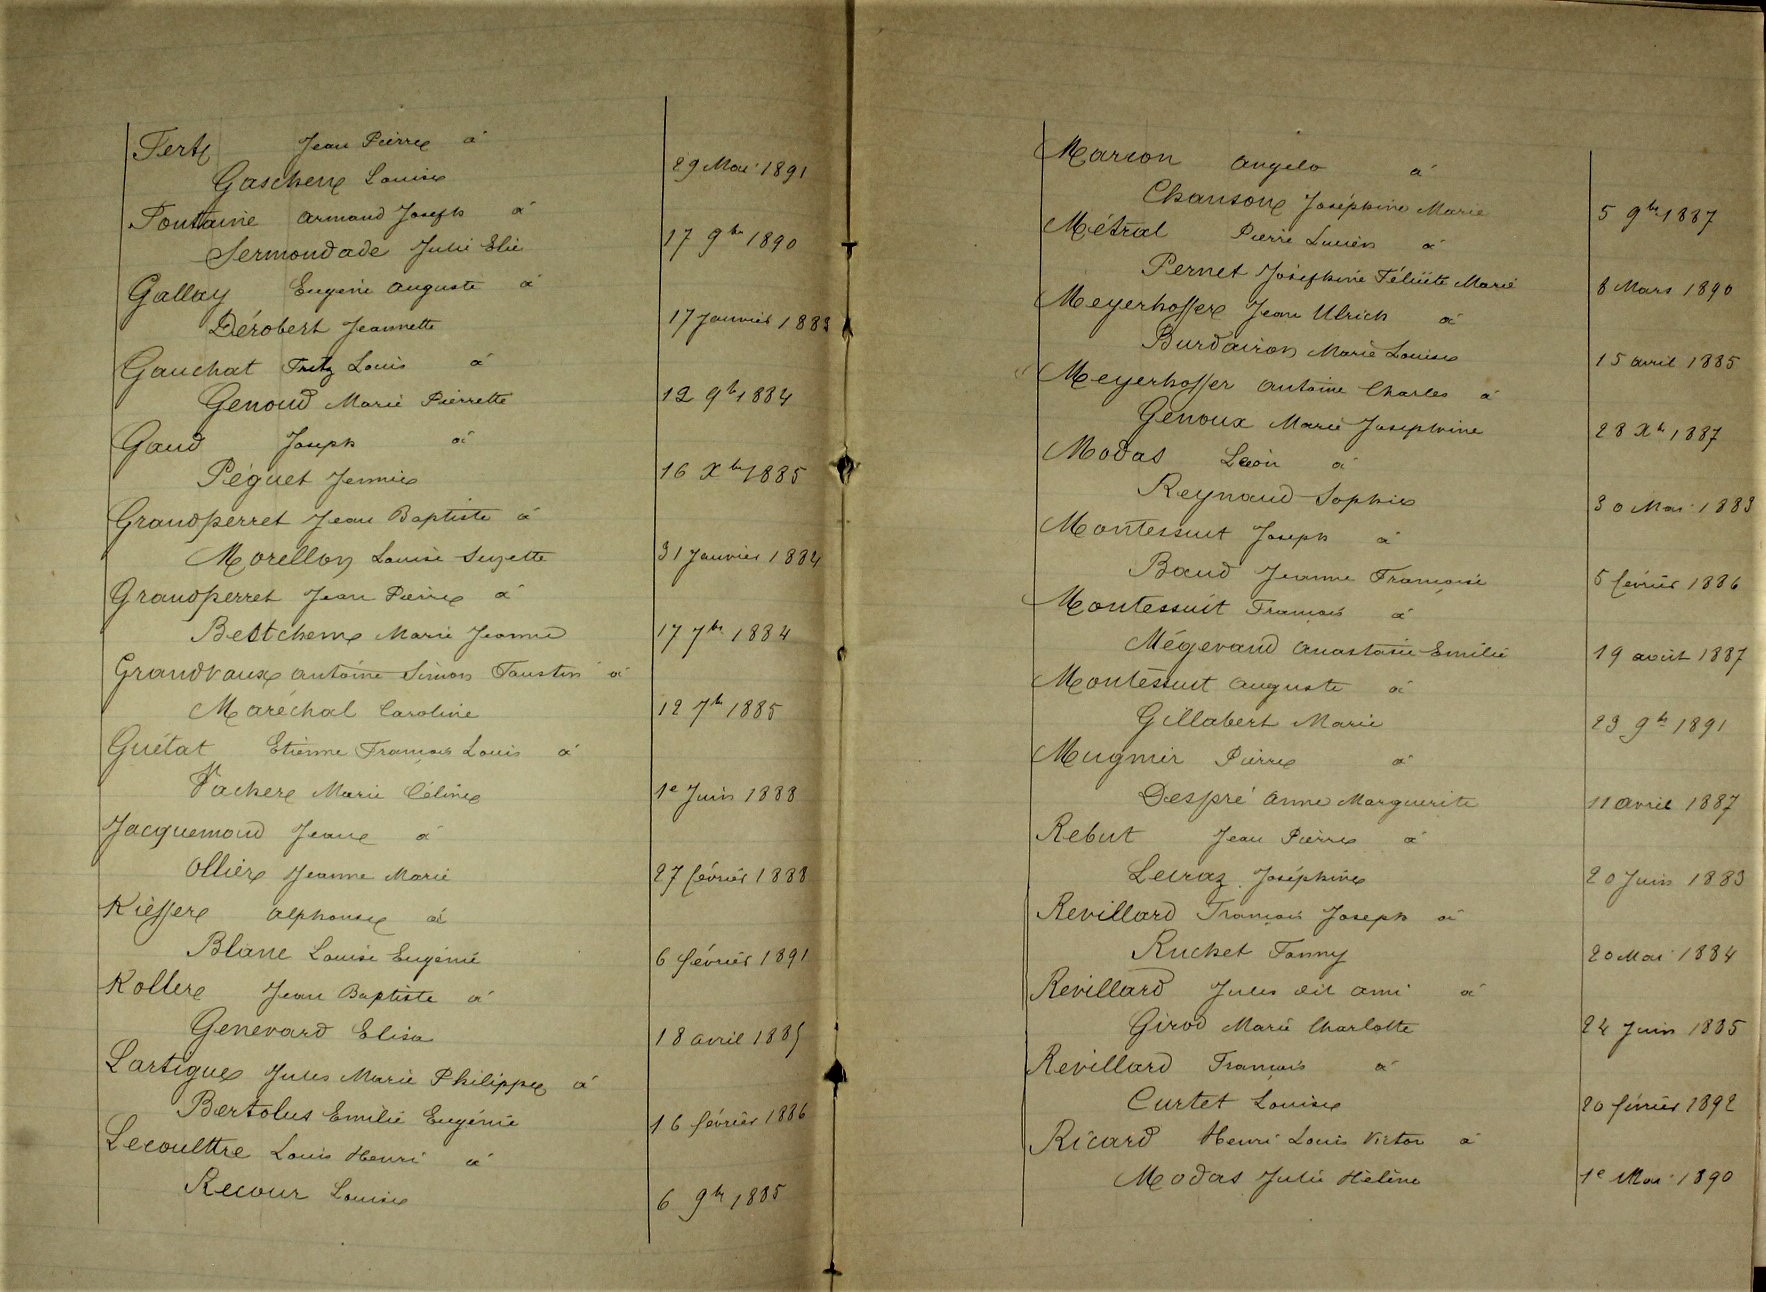 Ferty Jean Pierre à
Gaschen Louise 29 Mai 1891
Fontaine Armand Joseph à
Sermondade Julie Elie 17 9bre 1890
Gallay Eugène Auguste à
Dérobert Jeannette 17 Janvier 1883
Gauchat Fritz Louis à
Genoud Marie Pierrette 12 9b 1884
Gaud Joseph à
Péguet Jennie 16 Xbre 1885
Grandperret Jean Baptiste à
Morellon Louise Suzette 31 Janvier 1884
Grandperret Jean Pierre à
Bettchen Marie Jeanne 17 7bre 1884
Grandvaux Antoine Simon Faustin à
Maréchal Caroline 12 7b 1885
Guétat Etienne François Louis à
Vacher Marie Céline 1e Juin 1888
Jacquemoud Jean à
Ollier Jeanne Marie 27 février 1888
Kieffer Alphonse à
Blanc Louise Eugénie 6 février 1891
Koller Jean Baptiste à
Genevard Elisa 18 avril 1885
Lartigue Jules Marie Philippe à
Bertolus Emilie Eugénie 16 février 1886
Lecoultre Louis Henri à
Recour Louise 6 9bre 1885
Marion Angelo à
Chanson Joséphine Marie 5 9bre 1887
Métral Pierre Lucien à
Pernet Joséphine Félicité Marie 8 Mars 1890
Meyerhoffer Jean Ulrich à
Burdairon Marie Louise 15 avril 1885
Meyerhoffer Antoine Charles à
Genoux Marie Joséphine 28 Xb 1887
Modas Léon à
Reynaud Sophie 30 Mai 1883
Montessuit Joseph à
Baud Jeanne Françoise 5 février 1886
Montessuit François à
Mégevand Anastasie Emilie 19 août 1887
Montessuit Auguste à
Gillabert Marie 23 9b 1891
Mugnier Pierre à
Despré Anne Marguerite 11 avril 1887
Rebut Jean Pierre à
Leiraz Joséphine 20 Juin 1883
Revillard François Joseph à
Ruchet Fanny 20 Mai 1884
Revillard Jules dit Ami à
Girod Marie Charlotte 24 Juin 1885
Revillard François à
Curtet Louise 20 février 1892
Ricard Henri Louis Victor à
Modas Julie Hélène 1e Mai 1890